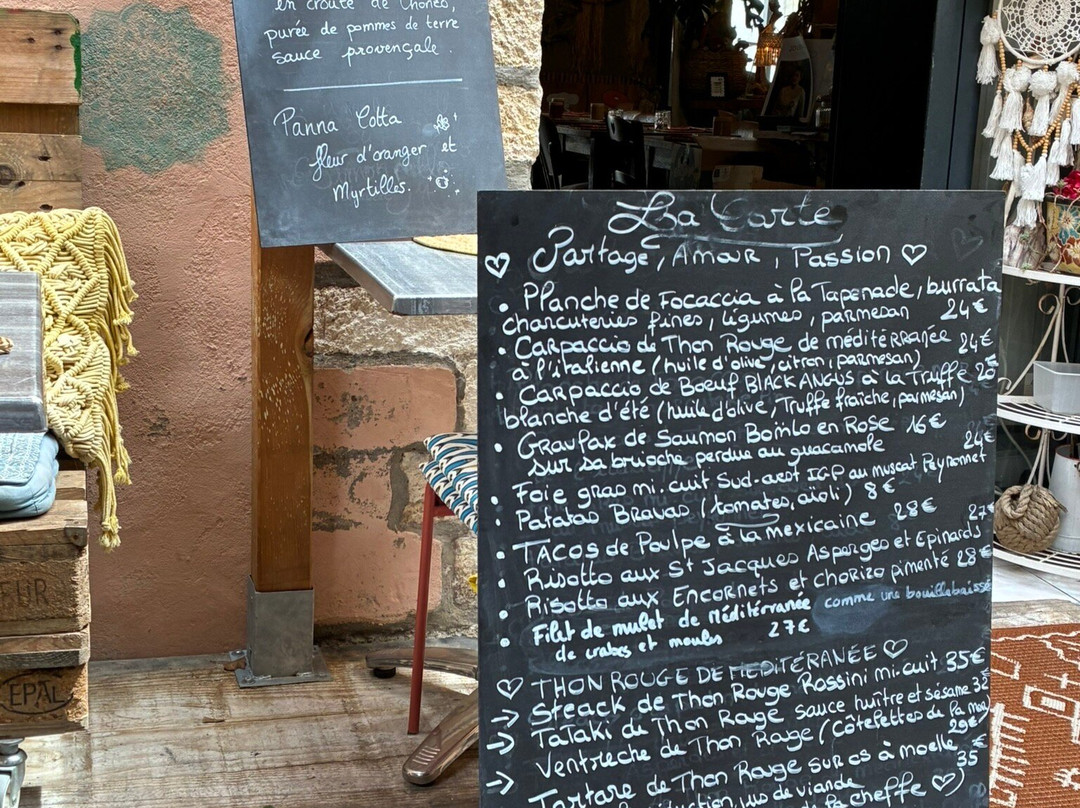 en croûte de Chorizo,
purée de pommes de terre
sauce provençale.
Panna Cotta
fleur d'oranger et
Myrtilles.
La Carte
Partage, Amour, Passion
• Planche de Focaccia à la Tapenade, burrata
charcuteries fines, légumes, parmesan 24€
• Carpaccio de Thon Rouge de méditérranée 24€
à l'italienne (huile d'olive, citron, parmesan)
• Carpaccio de Boeuf BLACK ANGUS à la Truffe 26
blanche d'été (huile d'olive, Truffe fraîche, parmesan)
• Gravlax de Saumon Bomlo en Rose 16€
sur sa brioche perdue au guacamole
• Foie gras mi.cuit Sud-ouest IGP au muscat Peyronnet 24€
• Patatas Bravas (tomates, aioli) 8€
• TACOS de Poulpe à la mexicaine 28€
• Risotto aux St Jacques Asperges et Epinards 27€
• Risotto aux Encornets et chorizo pimenté 28€
• Filet de mulet de Méditérranée comme une bouillabaisse
de crabes et moules 27€
THON ROUGE DE MEDITÉRANÉE
→ Steack de Thon Rouge Rossini mi.cuit 35€
→ Tataki de Thon Rouge sauce huître et sésame 32
→ Ventrèche de Thon Rouge (Côtelettes de la mer)
29€
→ Tartare de Thon Rouge sur os à moelle 35€
jus de viande
de la cheffe )
EUR
EPAL